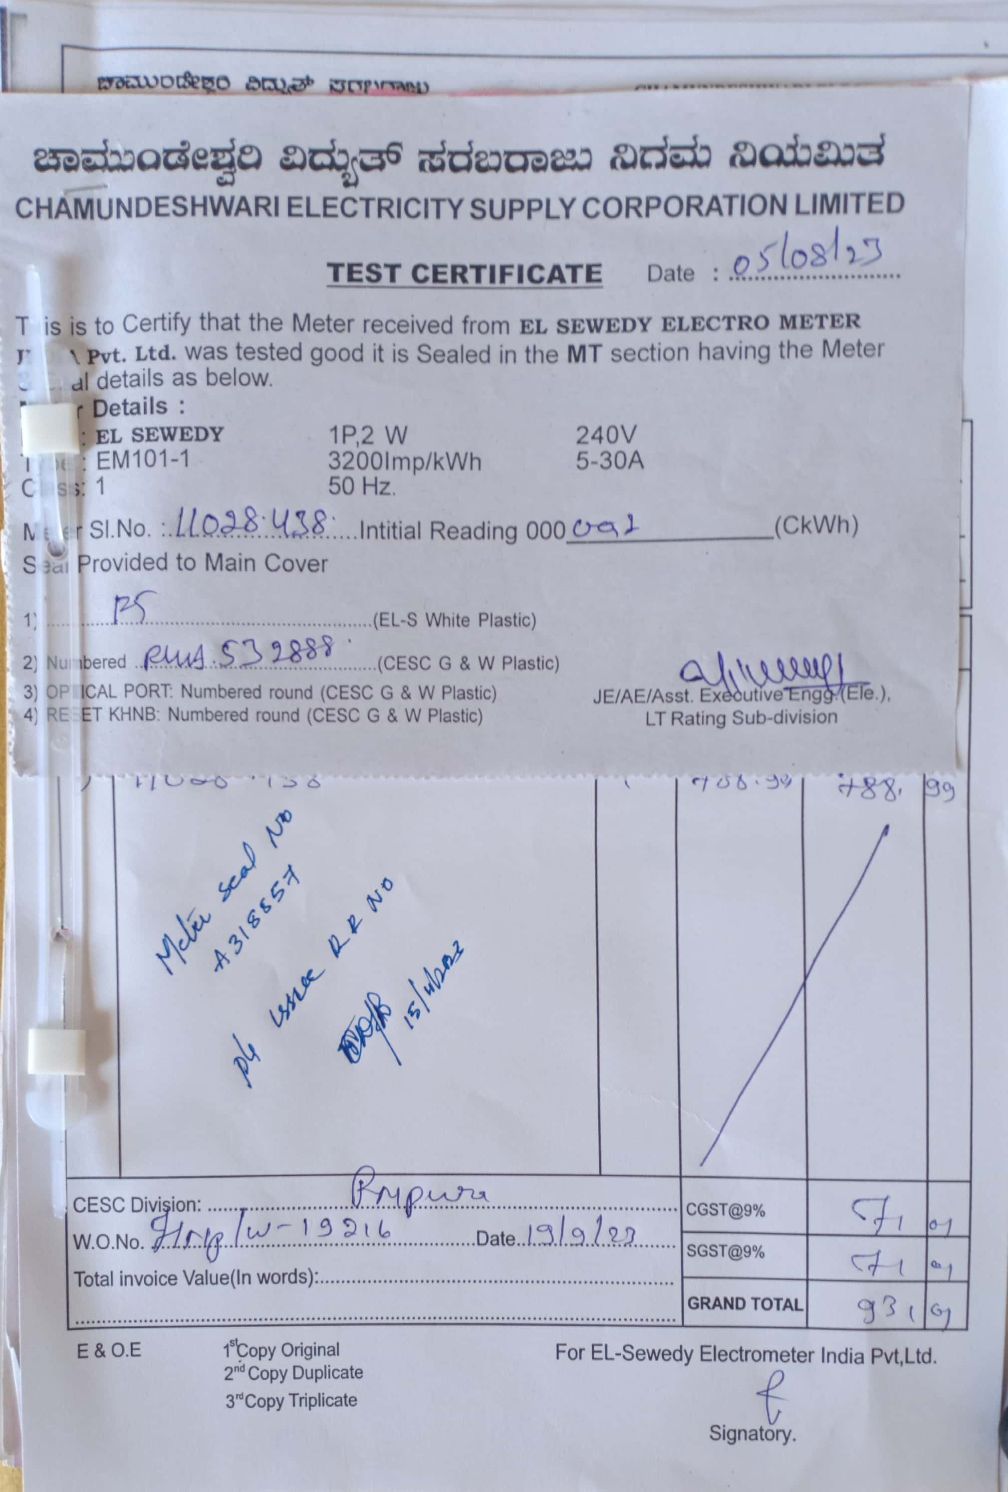 ಚಾಮುಂಡೇಶ್ವರಿ ವಿದ್ಯುತ್
ಚಾಮುಂಡೇಶ್ವರಿ ವಿದ್ಯುತ್ ಸರಬರಾಜು ನಿಗಮ ನಿಯಮಿತ
CHAMUNDESHWARI ELECTRICITY SUPPLY CORPORATION LIMITED
TEST CERTIFICATE Date : 05/08/23
This is to Certify that the Meter received from EL SEWEDY ELECTRO METER
Pvt. Ltd. was tested good it is Sealed in the MT section having the Meter
al details as below.
r Details :
: EL SEWEDY 1P,2 W 240V
: EM101-1 3200Imp/kWh 5-30A
Class: 1 50 Hz.
Meter Sl.No. : 11028438 Intitial Reading 000 (CkWh)
Seal Provided to Main Cover
1) (EL-S White Plastic)
2) Numbered 532888 (CESC G & W Plastic)
3) OPTICAL PORT: Numbered round (CESC G & W Plastic)
4) RESET KHNB: Numbered round (CESC G & W Plastic)
JE/AE/Asst. Executive Engg.(Ele.),
LT Rating Sub-division
788.99 788. 99
Meter seal No
A318557
Issue RR NO
15/11/2023
CESC Division:
W.O.No. /W-19216 Date 19/9/23
Total invoice Value(In words):
CGST@9% 71 01
SGST@9% 71 01
GRAND TOTAL 931 01
E & O.E 1st Copy Original
2nd Copy Duplicate
3rd Copy Triplicate
For EL-Sewedy Electrometer India Pvt,Ltd.
Signatory.